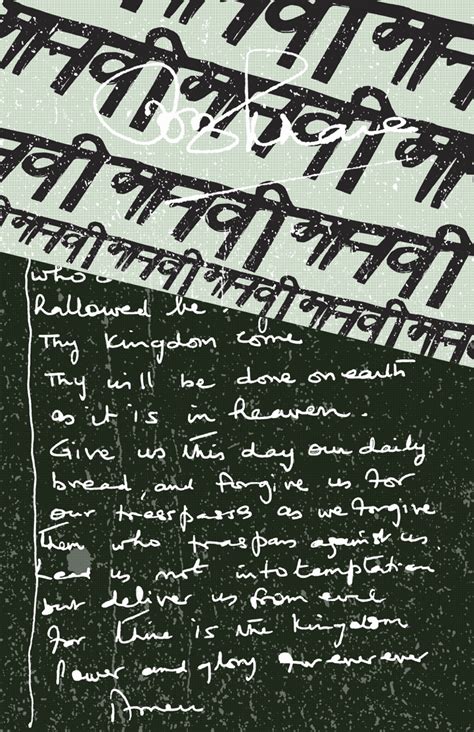 मानवी मा
नवी मानवी मा
मानवी मानवी
मानवी मानवी मानवी मानवी
who
Hallowed be
Thy Kingdom come
Thy will be done on earth
as it is in heaven.
Give us this day our daily
bread, and forgive us for
our trespasses as we forgive
them who trespass against us.
Lead us not into temptation
but deliver us from evil
for thine is the Kingdom
Power and glory for ever ever
Amen